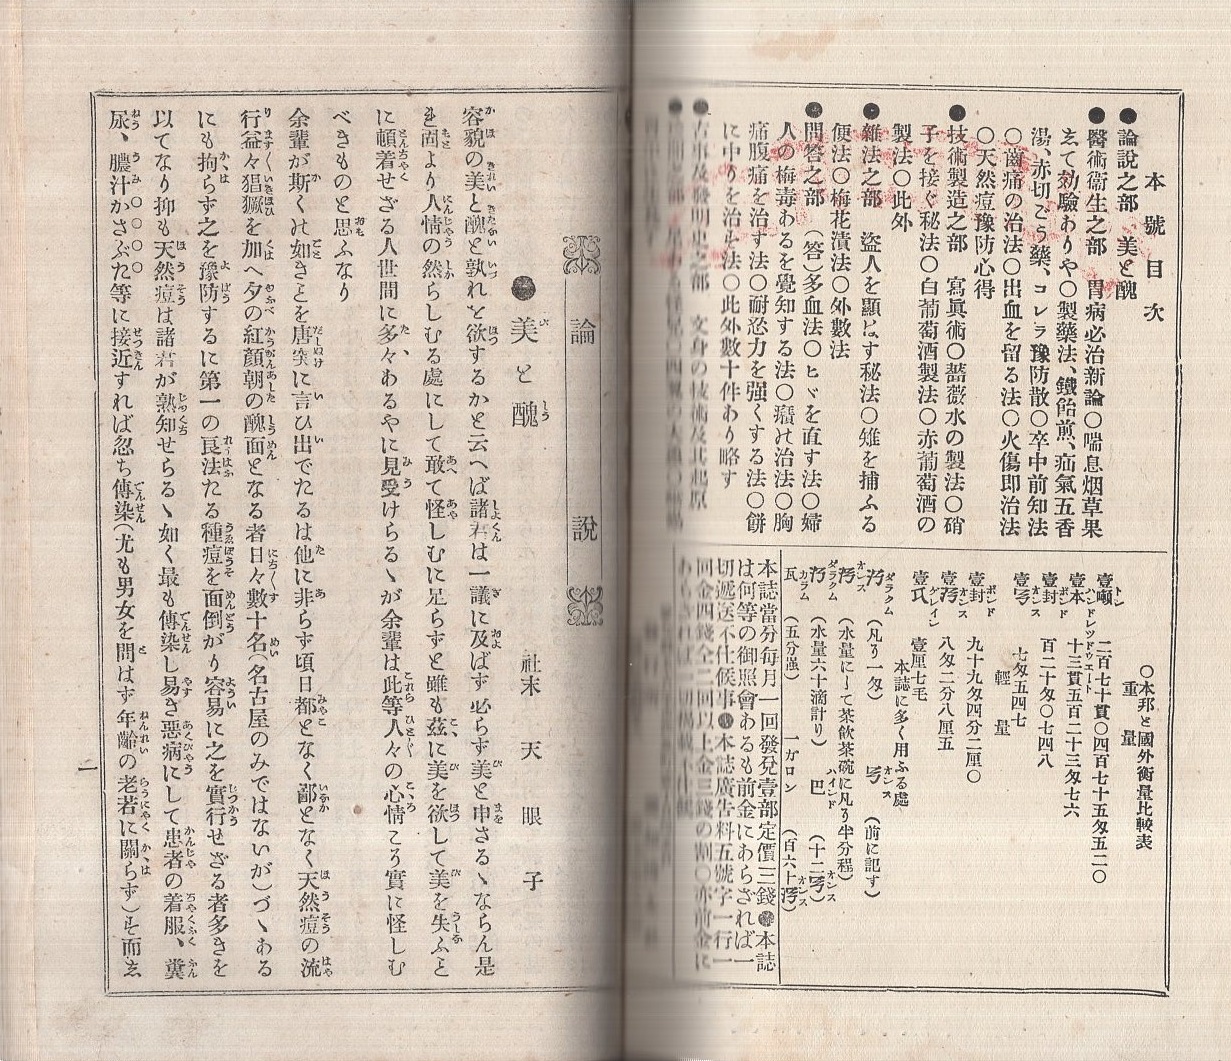 本號目次
●論說之部 美と醜
●醫術衞生之部 胃病必治新論〇喘息烟草果
ゑて効驗ありや〇製藥法、鐵飴煎、疝氣五香
湯、赤切ごう藥、コレラ豫防散〇卒中前知法
〇齒痛の治法〇出血を留る法〇火傷即治法
〇天然痘豫防心得
●技術製造之部 寫眞術〇薔薇水の製法〇硝
子を接ぐ秘法〇白葡萄酒製法〇赤葡萄酒の
製法〇此外
●雜法之部 盜人を顯はす秘法〇雉を捕ふる
便法〇梅花漬法〇外數法
●問答之部 (答)多血法〇ヒヾを直す法〇婦
人の梅毒あるを覺知する法〇癪の治法〇胸
痛腹痛を治す法〇耐忍力を强くする法〇餠
に中りを治す法〇此外數十件あり略す
●古事及發明史之部 文身の技術及其起原
〇本邦と國外衡量比較表
重量
壹噸トン 二百七十貫〇四百七十五匁五二〇
壹本ハンドレッドウェート 十三貫五百二十三匁七六
壹封ポンド 百二十匁〇七四八
壹オンス 七匁五四七
輕量
壹封ポンド 九十九匁四分二厘〇
壹オンス 八匁二分八厘五
壹グレイン 壹厘七毛
本誌に多く用ふる處
ダラクム (凡り一匁) オンス (前に記す)
オンス (水量にして茶飮茶碗に凡り半分程)
ダラクム (水量六十滴計り) 巴ハインド (十二オンス)
瓦カラム (五分强) 一ガロン (百六十オンス)
本誌當分每月一回發兌壹部定價三錢●本誌
は何等の御照會あるも前金にあらざれば一
切遞送不仕候事●本誌廣告料五號字一行一
回金四錢全二回以上金三錢の割〇亦前金に
論說
●美と醜
社末 天眼子
容貌の美と醜と孰れを欲するかと云へば諸君は一議に及ばず必らず美と申さるゝならん是
を固より人情の然らしむる處にして敢て怪しむに足らずと雖も茲に美を欲して美を失ふと
に頓着せざる人世間に多々あるやに見受けらるゝが余輩は此等人々の心情こそ實に怪しむ
べきものと思ふなり
余輩が斯くの如きことを唐突に言ひ出でたるは他に非らず頃日都となく鄙となく天然痘の流
行益々猖獗を加へ夕の紅顏朝の醜面となる者日々數十名(名古屋のみではないが)づゝある
にも拘らず之を豫防するに第一の良法たる種痘を面倒がり容易に之を實行せざる者多きを
以てなり抑も天然痘は諸君が熟知せらるゝ如く最も傳染し易き惡病にして患者の着服、糞
尿、膿汁かさぶた等に接近すれば忽ち傳染(尤も男女を問はず年齡の老若に關らず)を而ゑ
一